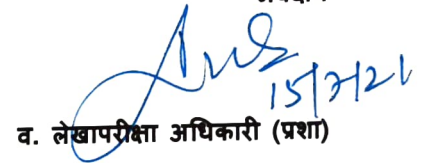 15/7/21
व. लेखापरीक्षा अधिकारी (प्रशा)